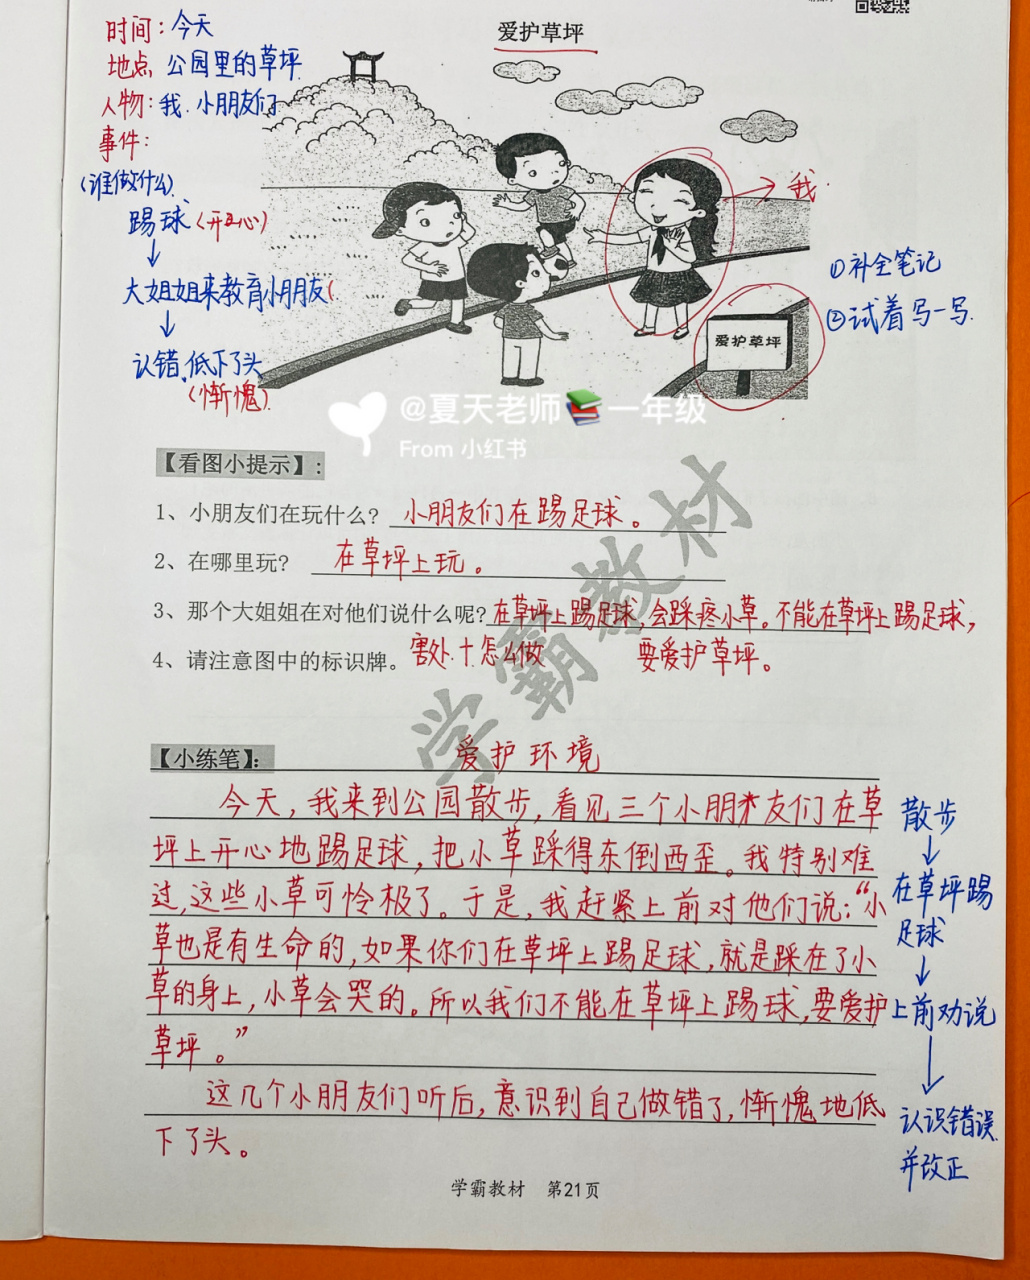 爱护草坪
时间：今天
地点 公园里的草坪
人物：我、小朋友们
事件：
(谁做什么)
踢球(开心)
↓
大姐姐来教育小朋友(
↓
认错、低下了头
(惭愧)
→ 我
①补全笔记
②试着写一写
爱护草坪
@夏天老师📚一年级
From 小红书
【看图小提示】：
1、小朋友们在玩什么? 小朋友们在踢足球。
2、在哪里玩? 在草坪上玩。
3、那个大姐姐在对他们说什么呢? 在草坪上踢足球，会踩疼小草。不能在草坪上踢足球，
4、请注意图中的标识牌。 害处十怎么做 要爱护草坪。
学霸教材
【小练笔】： 爱护环境
今天，我来到公园散步，看见三个小朋友们在草
坪上开心地踢足球，把小草踩得东倒西歪。我特别难
过，这些小草可怜极了。于是，我赶紧上前对他们说：“小
草也是有生命的，如果你们在草坪上踢足球，就是踩在了小
草的身上，小草会哭的。所以我们不能在草坪上踢球，要爱护
草坪。”
这几个小朋友们听后，意识到自己做错了，惭愧地低
下了头。
散步
↓
在草坪踢
足球
↓
上前劝说
↓
认识错误
并改正
学霸教材 第21页